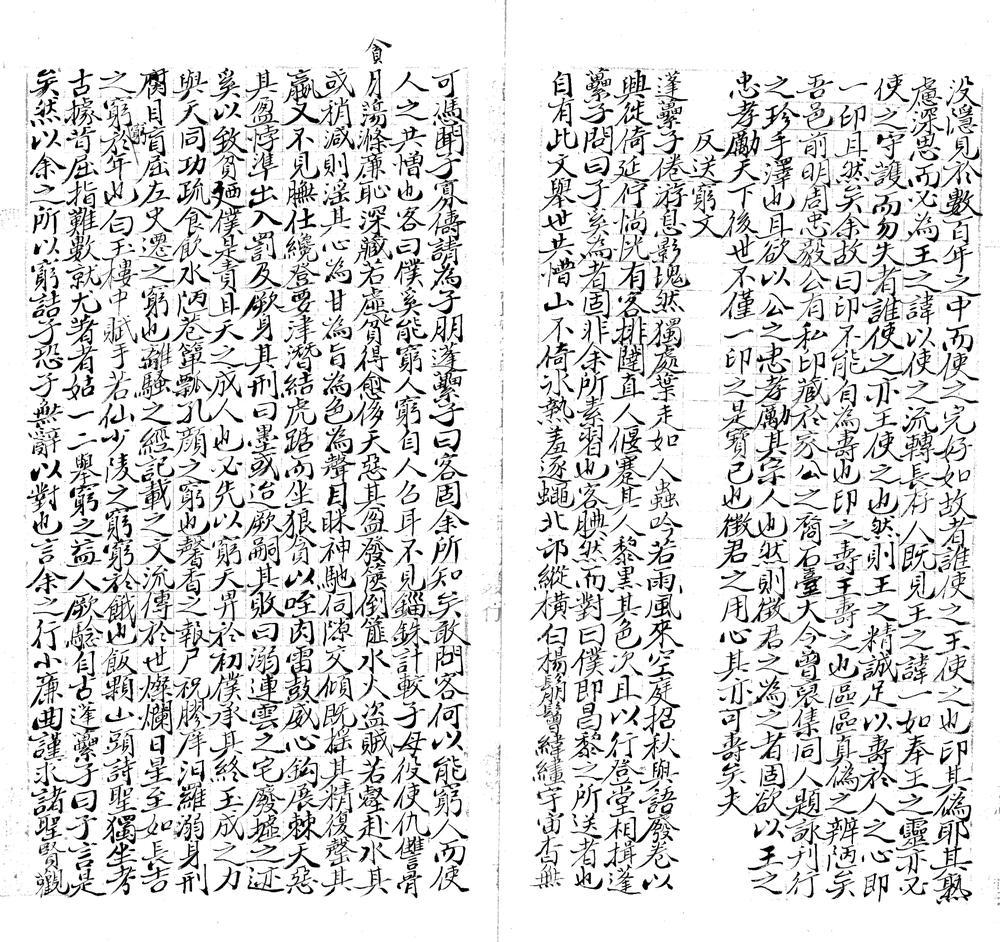 没隱見於數百年之中而使之完好如故者誰使之王使之也印其為耶其熟
慮深思而必為王之諱以使之流轉長存人既見王之諱一如奉王之靈亦必
使之守護而勿失者誰使之亦王使之也然則王之精誠足以壽於人之心即
一印且然矣余故曰印不能自為壽也印之壽王壽之也區區真偽之辨洒矣
吾邑前明周忠毅公有私印藏於家公之裔石臺大令曾裒集同人題詠刊行
之珍手澤也且欲以公之忠孝勵其宗人也然則徵君之為之者固欲以王之
忠孝勵天下後世不僅一印之是寶已也徵君之用心其亦可壽矣夫
反送窮文
蓬虆子倦游息影塊然獨處葉走如人蟲吟若雨風來空庭招秋與語廢卷以
興徙倚延佇惝恍有客排闥直人偃蹇其人黎黑其色次且以行登堂相揖蓬
虆子問曰子奚為者固非余所素習也客腆然而對曰僕即昌黎之所送者也
自有此文舉世共憎山不倚冰熱羞逐蠅北邙縱橫白楊鬅鬙緯繣宇宙杳無
可憑聞子寡儔請為子朋蓬虆子曰客固余所知矣敢問客何以能窮人而使
人之共憎也客曰僕奚能窮人窮自人召耳不見錙銖計較子母役使仇讐骨
月蕩滌廉恥深藏若虛貧得愈侈天惡其盈發篋倒簏水火盜賊若聲赴水其
貪
或稍減則淫其心為甘為旨為色為聲目眯神馳伺隙交傾既搖其精復罄其
贏又不見膴仕纔登要津潛結虎踞而坐狼貪以咥肉雷鼓威心鈎展棘天惡
其盈悖準出入罰及厥身其刑曰墨或迨厥嗣其敗曰溺連雲之宅廢墟之迹
奚以致貧廼僕是責且天之成人也必先以窮天畀於初僕承其終玉成之力
與天同功疏食飲水陋巷簞瓢孔顏之窮也馨香之報尸祝膠庠汨羅溺身刑
腐目盲屈左史遷之窮也離騷之經記載之文流傳於世燦爛日星至如長吉
之窮窮於年也白玉樓中賦手若仙少陵之窮窮於餓也飯顆山頭詩聖獨坐考
古據昔屈指難數就尤者者姑一二舉窮之益人厥驗自古蓬虆子曰子言是
矣然以余之所以窮詰子恐子無辭以對也言余之行小廉曲謹求諸聖賢觀